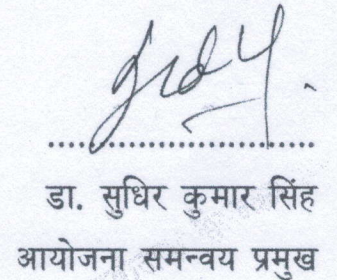 ....................................
डा. सुधिर कुमार सिंह
आयोजना समन्वय प्रमुख